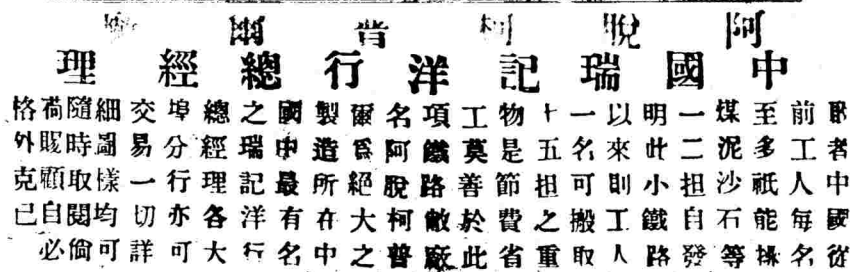 阿脫柯普爾
中國瑞記洋行總經理
啟者中國從
前工人每名
至多祇能挑
煤泥沙石等
一二担自發
明此小鐵路
以來則工人
一名可搬取
十五担之重
物是節費省
工莫善於此
項鐵路敝廠
名阿脫柯普
爾爲絕大之
製造所在中
國中最有名
之瑞記洋行
總經理各大
埠分行亦可
交易一切詳
細圖樣均可
隨時取閱倘
荷賜顧自必
格外克已